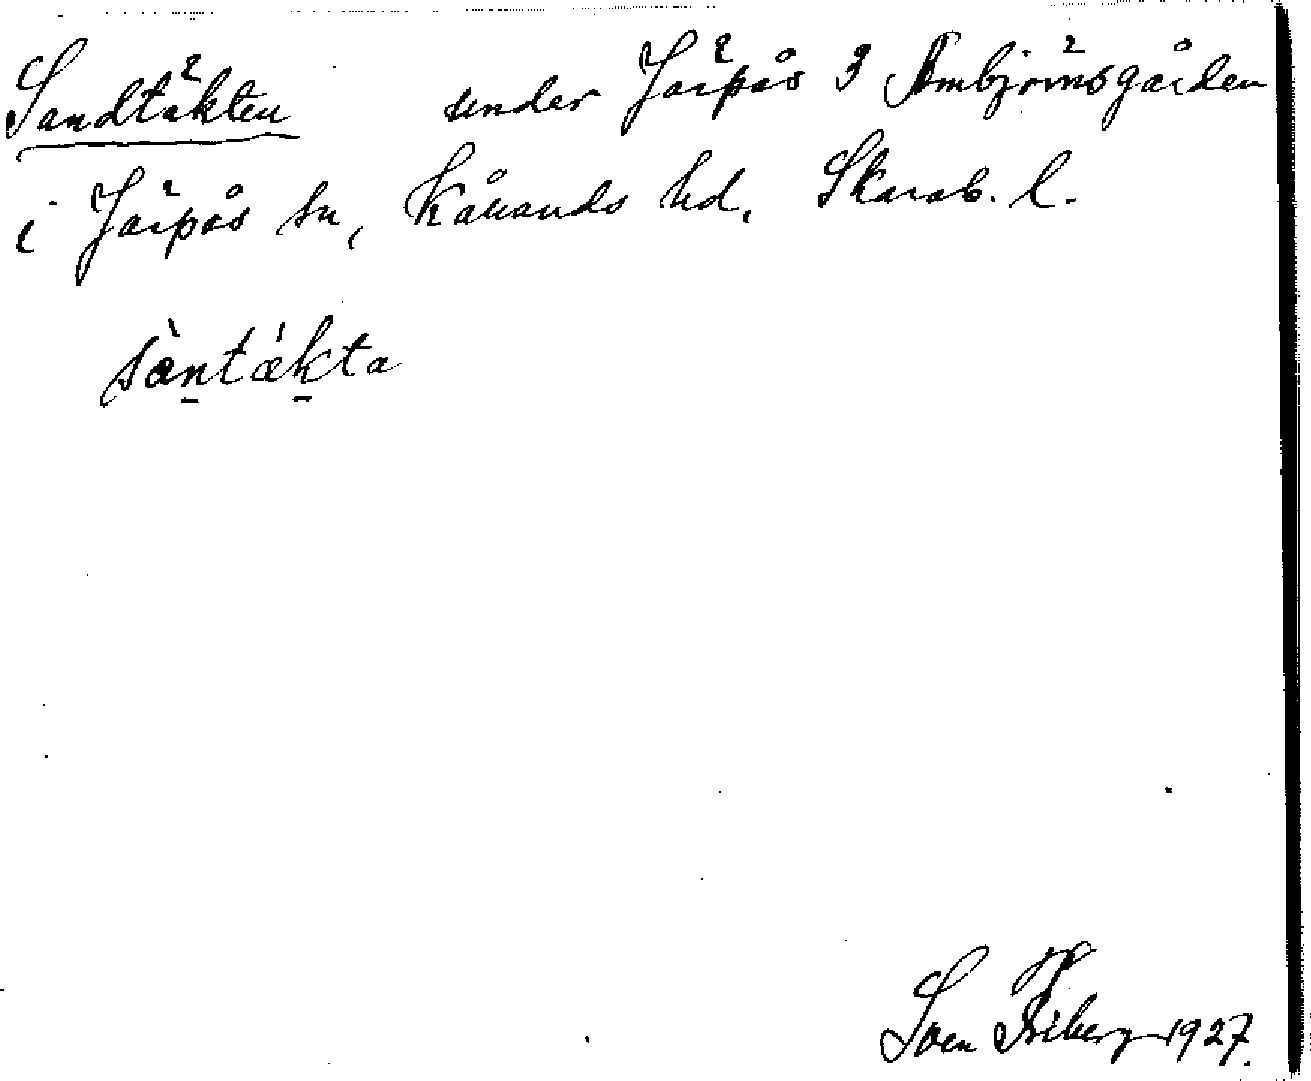 Sandtäkten under Järpås 3 Ambjörnsgården
i Järpås sn, Kållands hd, Skarab. l.
sàntákta
Sven Friberg 1927.